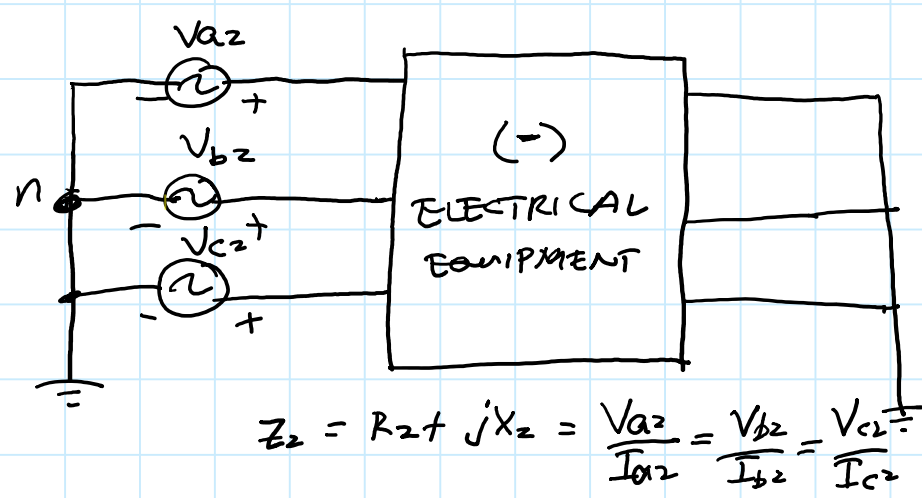 Va2
Vb2
n
Vc2
(-)
ELECTRICAL
EQUIPMENT
- +
- +
- +
Z2 = R2 + jX2 = Va2/Ia2 = Vb2/Ib2 = Vc2/Ic2